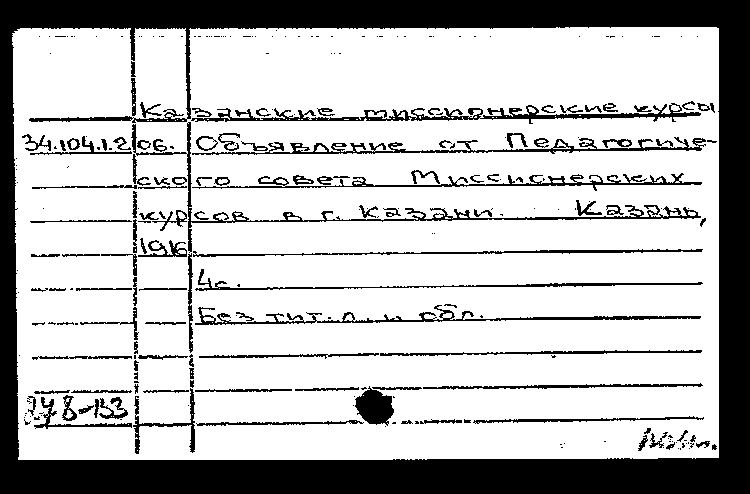 Казанские миссионерские курсы
34.104.1.206. Объявление от Педагогиче-
ского совета Миссионерских
курсов в г. Казани. Казань,
1916.
4с.
Без тит.л. и обл.
278-133